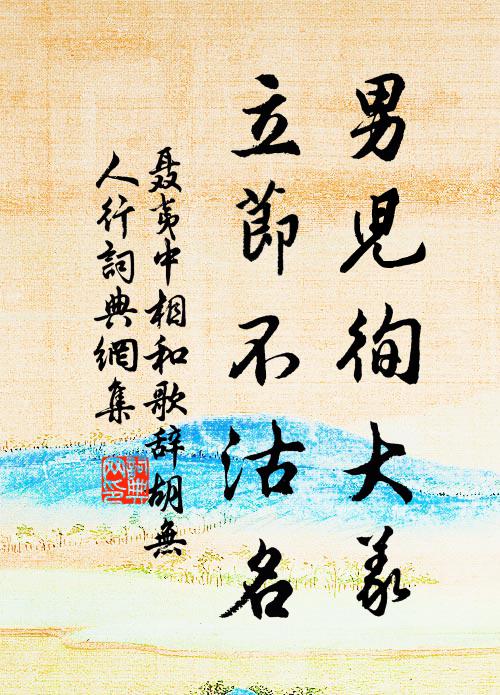 男兒徇大義
立節不沽名
聶夷中相和歌辞胡無
人行詞典網集